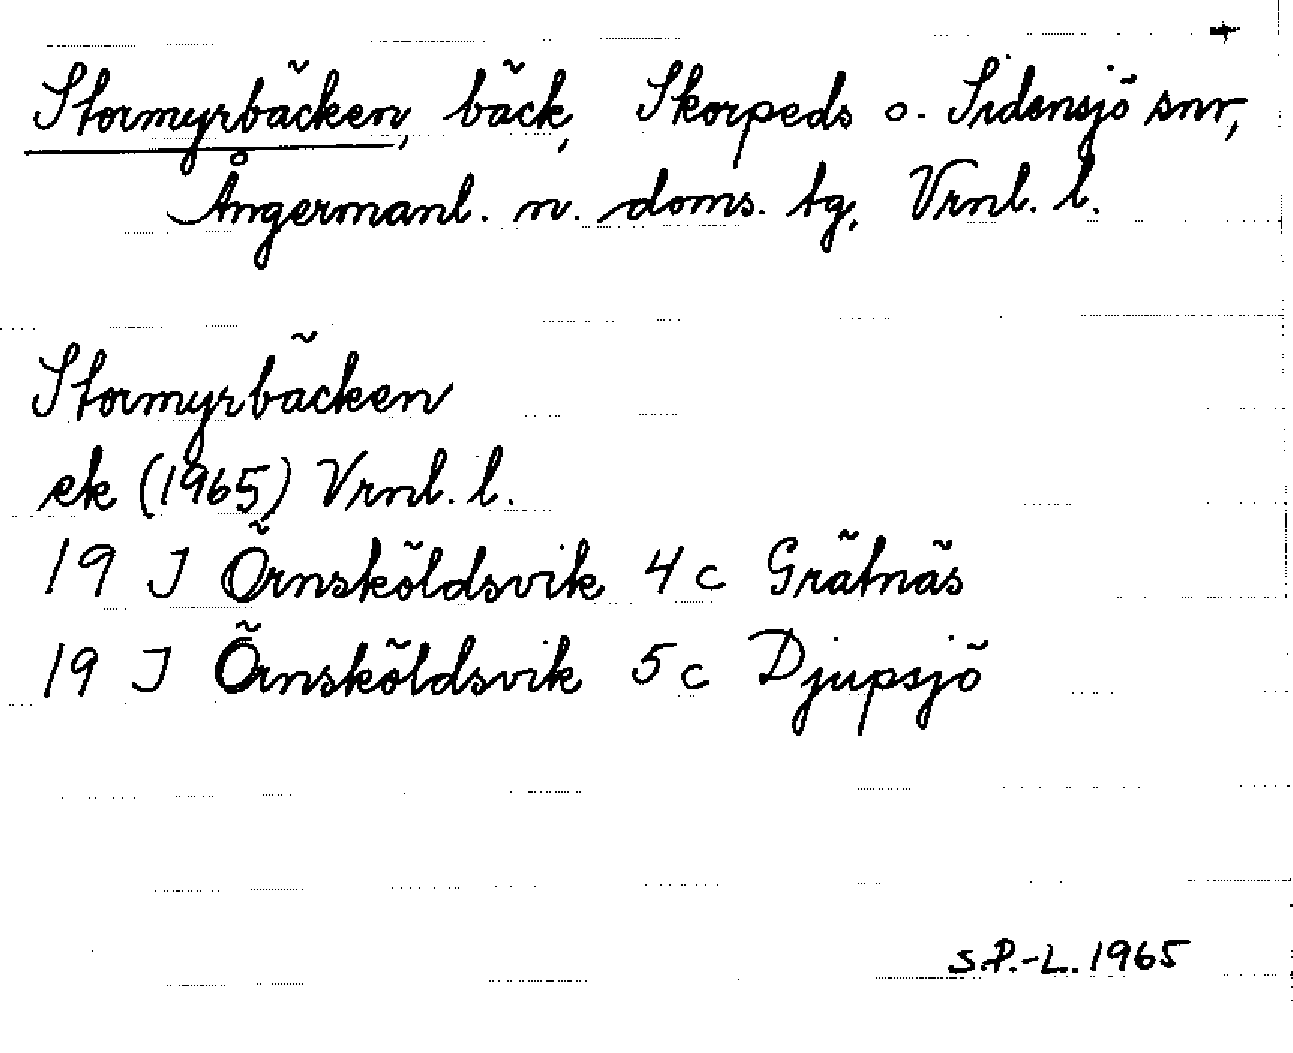 Stormyrbäcken, bäck, Skorpeds o. Sidensjö snr,
Ångermanl. n. doms. tg, Vrnl. l.
Stormyrbäcken
ek (1965) Vrnl. l.
19 J Örnsköldsvik 4 c Grätnäs
19 J Örnsköldsvik 5 c Djupsjö
S.P.-L. 1965